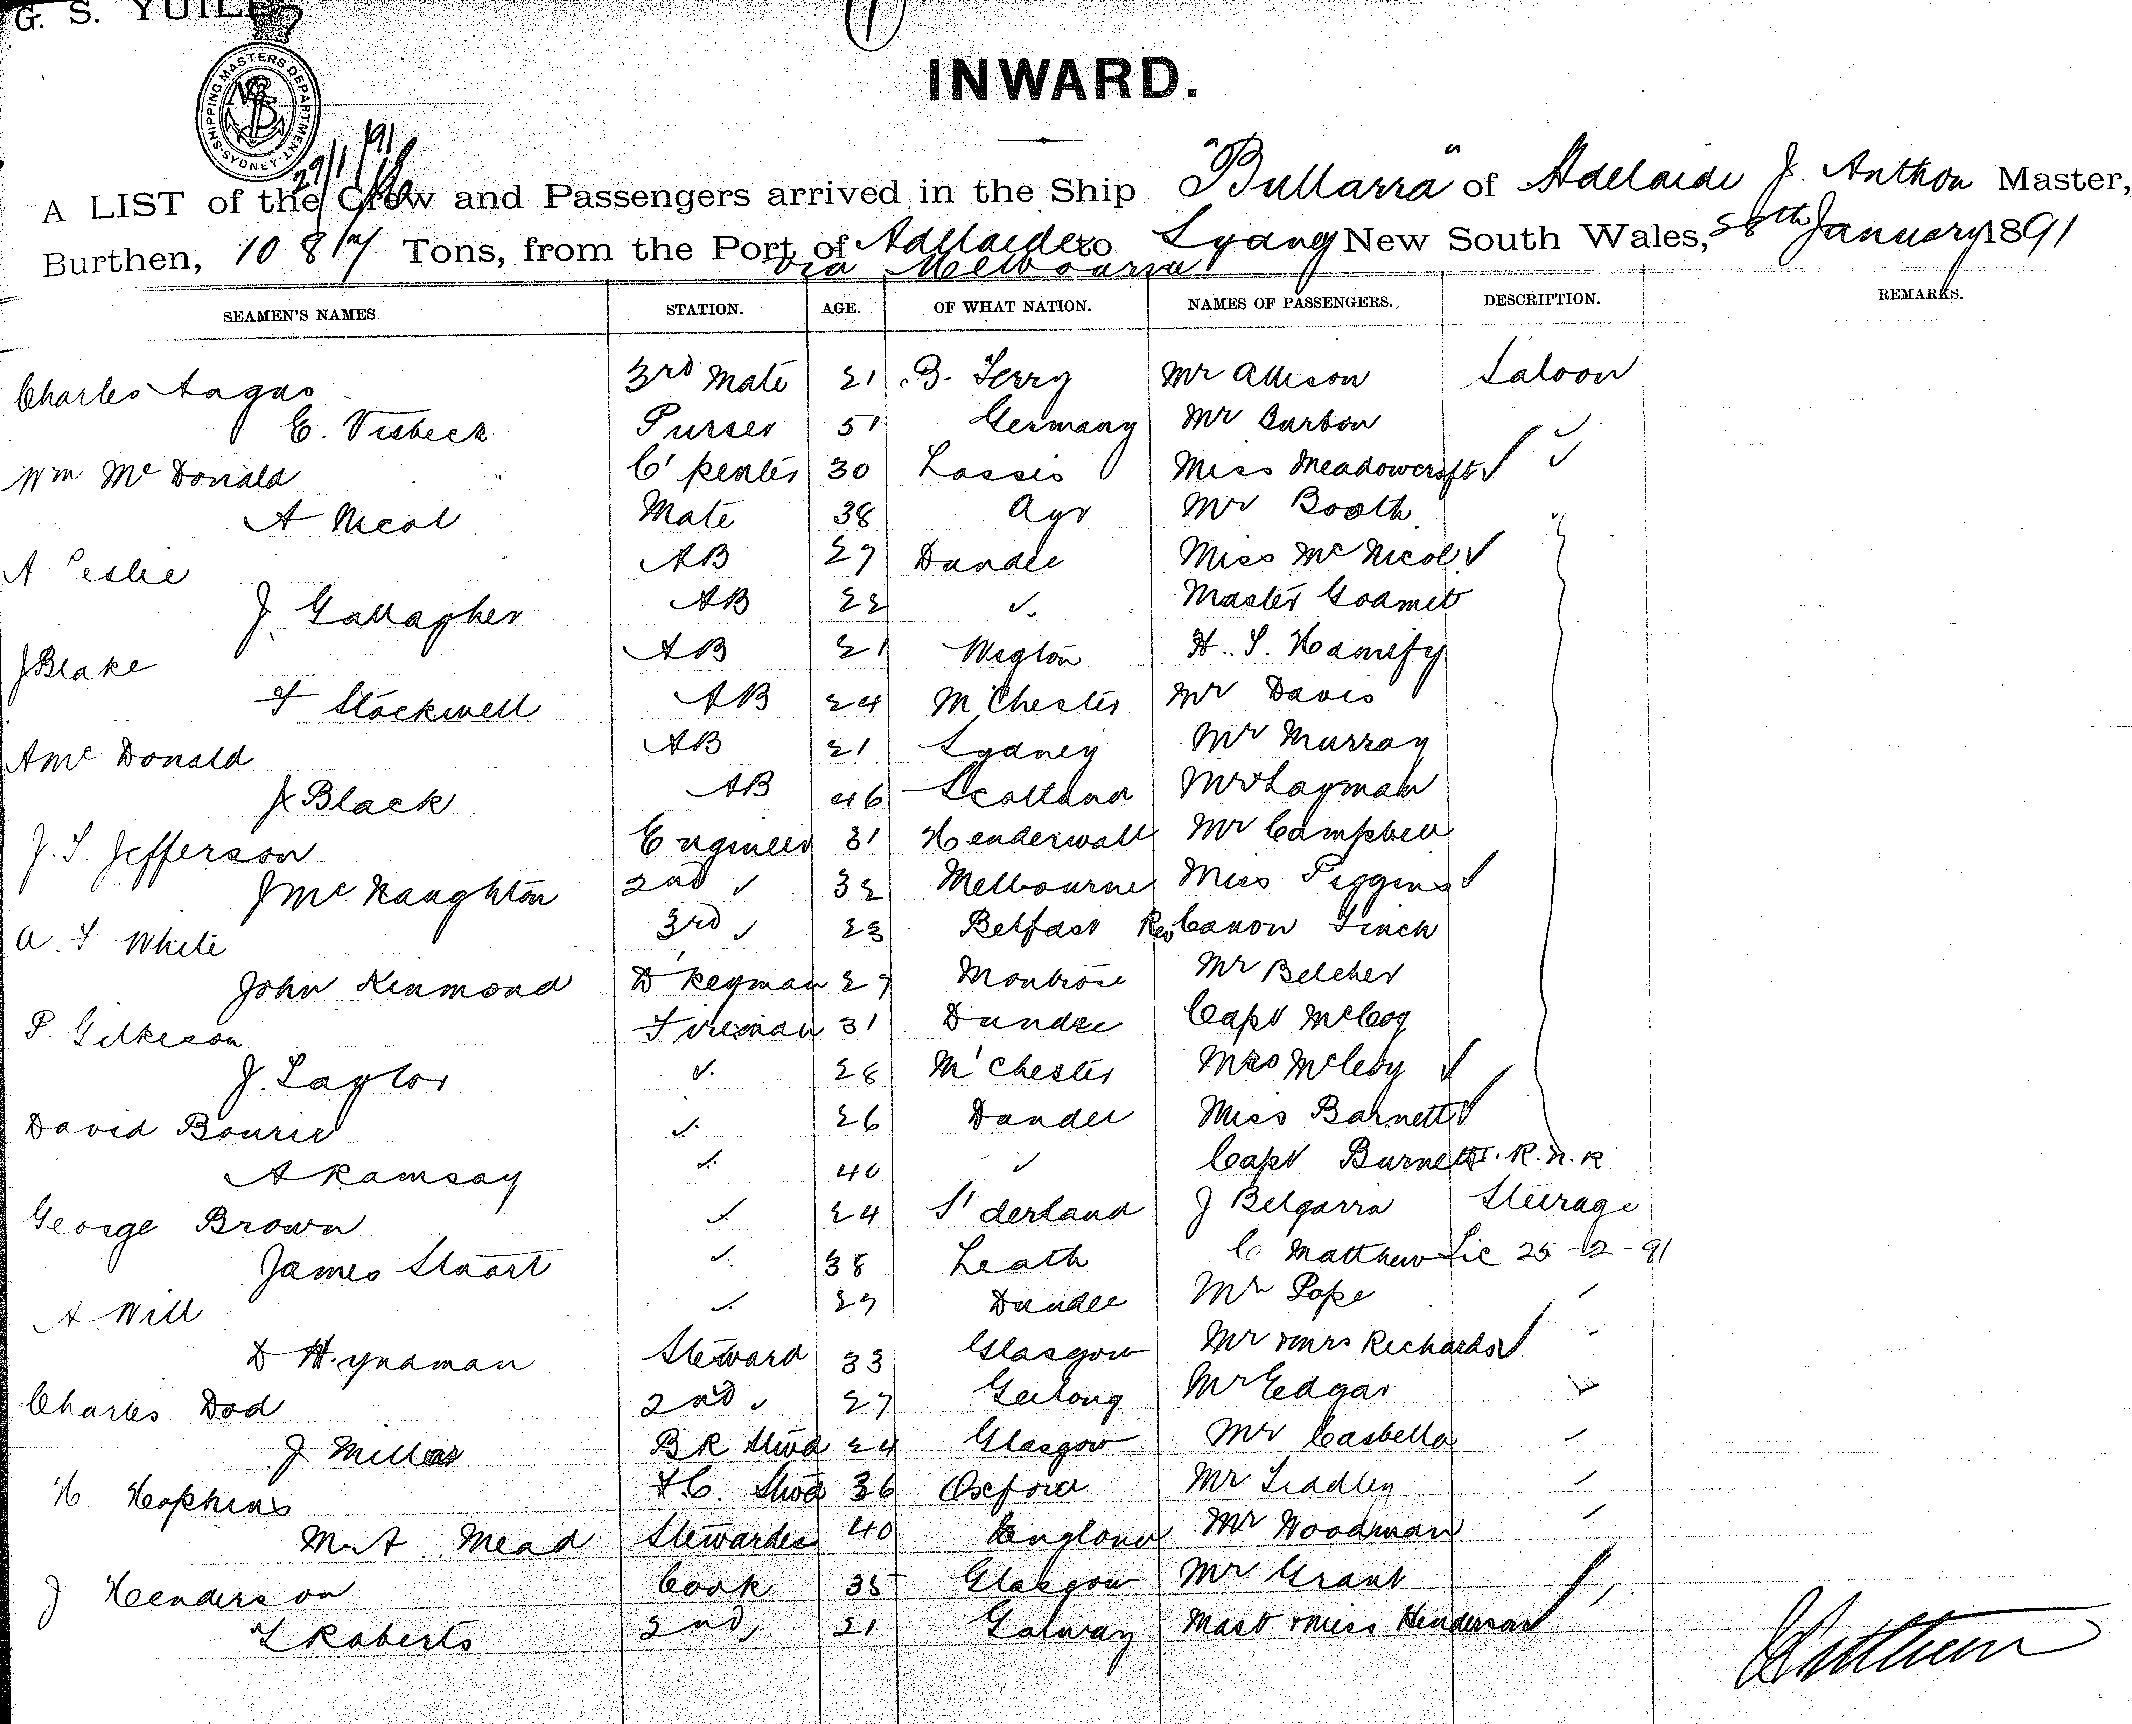 G. S. YUILL
SHIPPING MASTERS DEPARTMENT SYDNEY
INWARD.
29/1/91
A LIST of the Crew and Passengers arrived in the Ship "Bullarra" of Adelaide J. Anthon Master,
Burthen, 1087 Tons, from the Port of Adelaide to Sydney New South Wales, 28th January 1891
via Melbourne
SEAMEN'S NAMES. STATION. AGE. OF WHAT NATION. NAMES OF PASSENGERS. DESCRIPTION. REMARKS.
Charles Angus 3rd Mate 21 B. Ferry Mr Allison Saloon
E. Visbeck Purser 51 Germany Mr Burbon
Wm McDonald C'penter 30 Lossie Miss Meadowcroft
A Nicol Mate 38 Ayr Mr Booth
A Leslie AB 27 Dundee Miss McNicol
J. Gallagher AB 22 Master
J Blake AB 21 Wigton H. S.
F Stockwell AB 24 M'Chester Mr Davis
A McDonald AB 21 Sydney Mr Murray
J Black AB 46 Scotland Mr Layman
J. S. Jefferson Engineer 31 Henderwall Mr Campbell
J McNaughton 2nd 32 Melbourne Miss Piggins
A. S White 3rd 23 Belfast Rev Canon Finch
John Kinmond D'keyman 27 Montrose Mr Belcher
P. Gilkeson Fireman 31 Dundee Capt McCoy
J. Taylor 28 M'Chester Mrs McCoy
David Bowrie 26 Dundee Miss Barnett
A Ramsay 40 Capt Burnett I. R. N. R
George Brown 24 S'derland J Belgarra Steerage
James Stuart 38 Leath C Matthew Lic 25-2-91
A Will 27 Dundee Mr Pope
D Hyndman Steward 33 Glasgow Mr & Mrs Richards
Charles Dod 2nd 27 Geelong Mr Edgar
J Millar BR Stwd 24 Glasgow Mr Casbella
H Hopkins FC. Stwd 36 Oxford Mr Liadley
M. A Mead Stewardess 40 England Mr Woodman
J Henderson Cook 35 Glasgow Mr Grant
T Roberts 2nd 21 Galway Mast & Miss Henderson